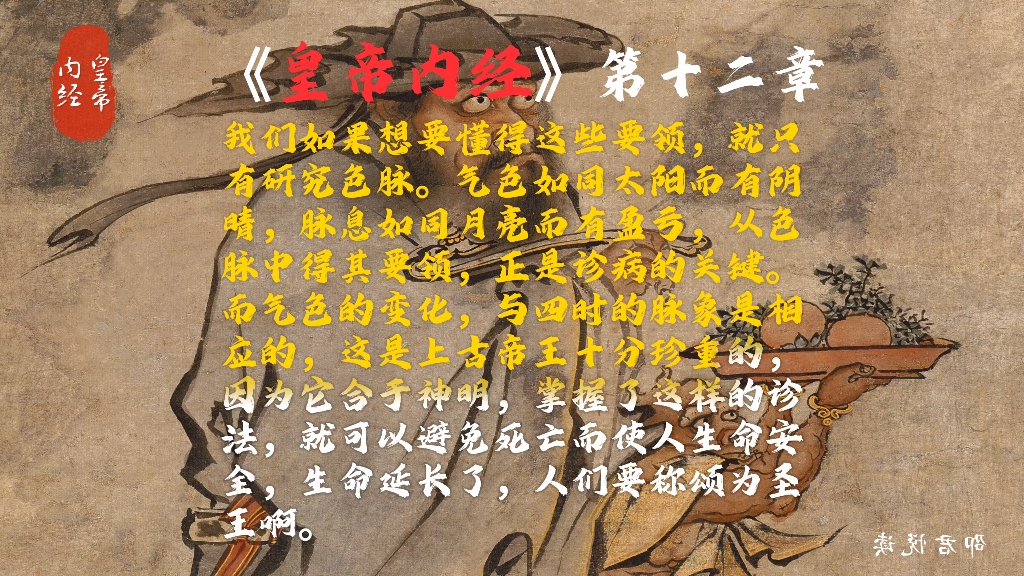 皇帝
内经
《皇帝内经》第十二章
我们如果想要懂得这些要领，就只
有研究色脉。气色如同太阳而有阴
晴，脉息如同月亮而有盈亏，从色
脉中得其要领，正是诊病的关键。
而气色的变化，与四时的脉象是相
应的，这是上古帝王十分珍重的，
因为它合于神明，掌握了这样的诊
法，就可以避免死亡而使人生命安
全，生命延长了，人们要称颂为圣
王啊。
邵君悦读